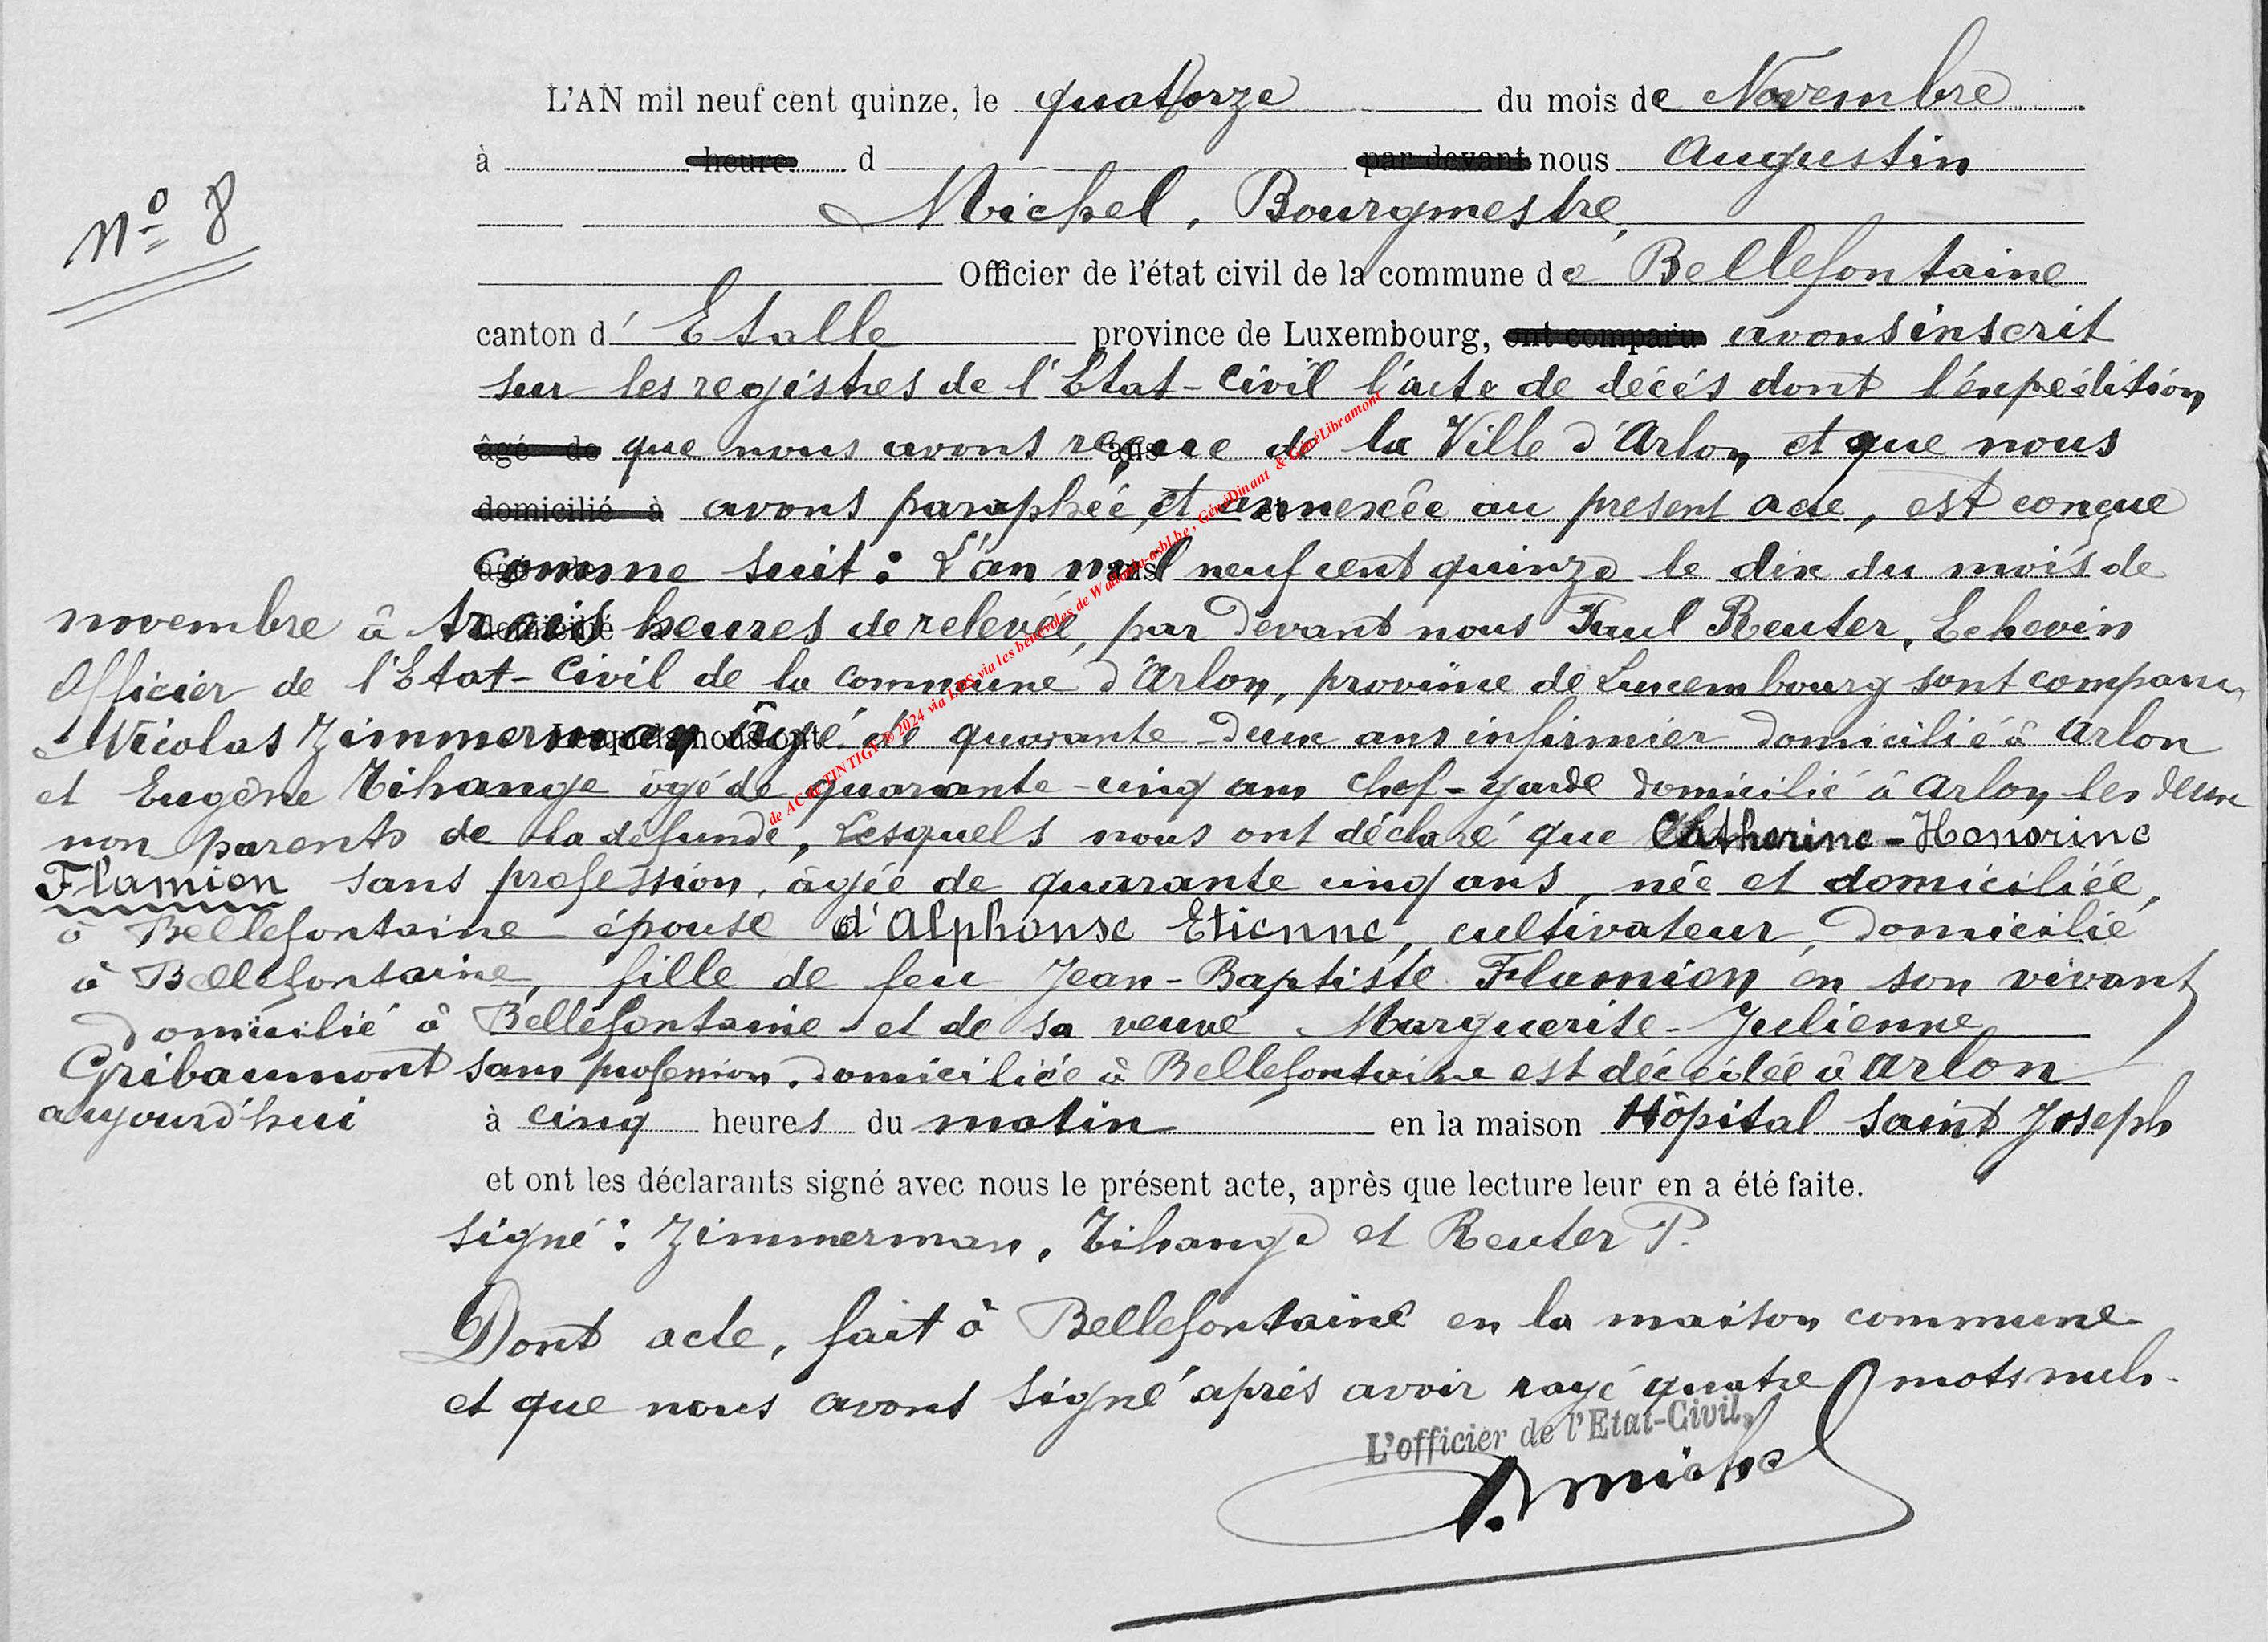 L'AN mil neuf cent quinze, le quatorze du mois de Novembre
à heure d par devant nous Augustin
N° 8
Michel, Bourgmestre,
Officier de l'état civil de la commune de Bellefontaine
canton d' Etalle province de Luxembourg, ont comparu avons inscrit
sur les registres de l'Etat-Civil l'acte de décès dont l'éxpédition
âgé de que nous avons reçue de la Ville d'Arlon et que nous
domicilié à avons paraphée, et annexée au présent acte, est conçue
comme suit : L'an mil neuf cent quinze le dix du mois de
novembre à trois heures de relevée, par devant nous Paul Reuter, Echevin
Officier de l'Etat-Civil de la commune d'Arlon, province de Luxembourg sont comparus
Nicolas Zimmerman âgé de quarante-deux ans infirmier domicilié à Arlon
et Eugène Tihange âgé de quarante-cinq ans chef-garde domicilié à Arlon les deux
non parents de la défunte, Lesquels nous ont déclaré que Catherine-Honorine
Flamion sans profession, âgée de quarante cinq ans, née et domiciliée,
à Bellefontaine épouse d'Alphonse Etienne, cultivateur, domicilié
à Bellefontaine, fille de feu Jean-Baptiste Flamion en son vivant
domicilié à Bellefontaine et de sa veuve Marguerite-Julienne
Gribaumont sans profession, domiciliée à Bellefontaine est décédée à Arlon
aujourd'hui à cinq heures du matin en la maison Hôpital Saint Joseph
et ont les déclarants signé avec nous le présent acte, après que lecture leur en a été faite.
signé : Zimmerman, Tihange et Reuter P.
Dont acte, fait à Bellefontaine en la maison commune
et que nous avons signé après avoir rayé quatre mots nuls.
L'officier de l'Etat-Civil,
A. Michel
de AC de TINTIGNY © 2024 via les bénévoles de Wallonia-asbl.be, GénéDinant & GénéLibramont